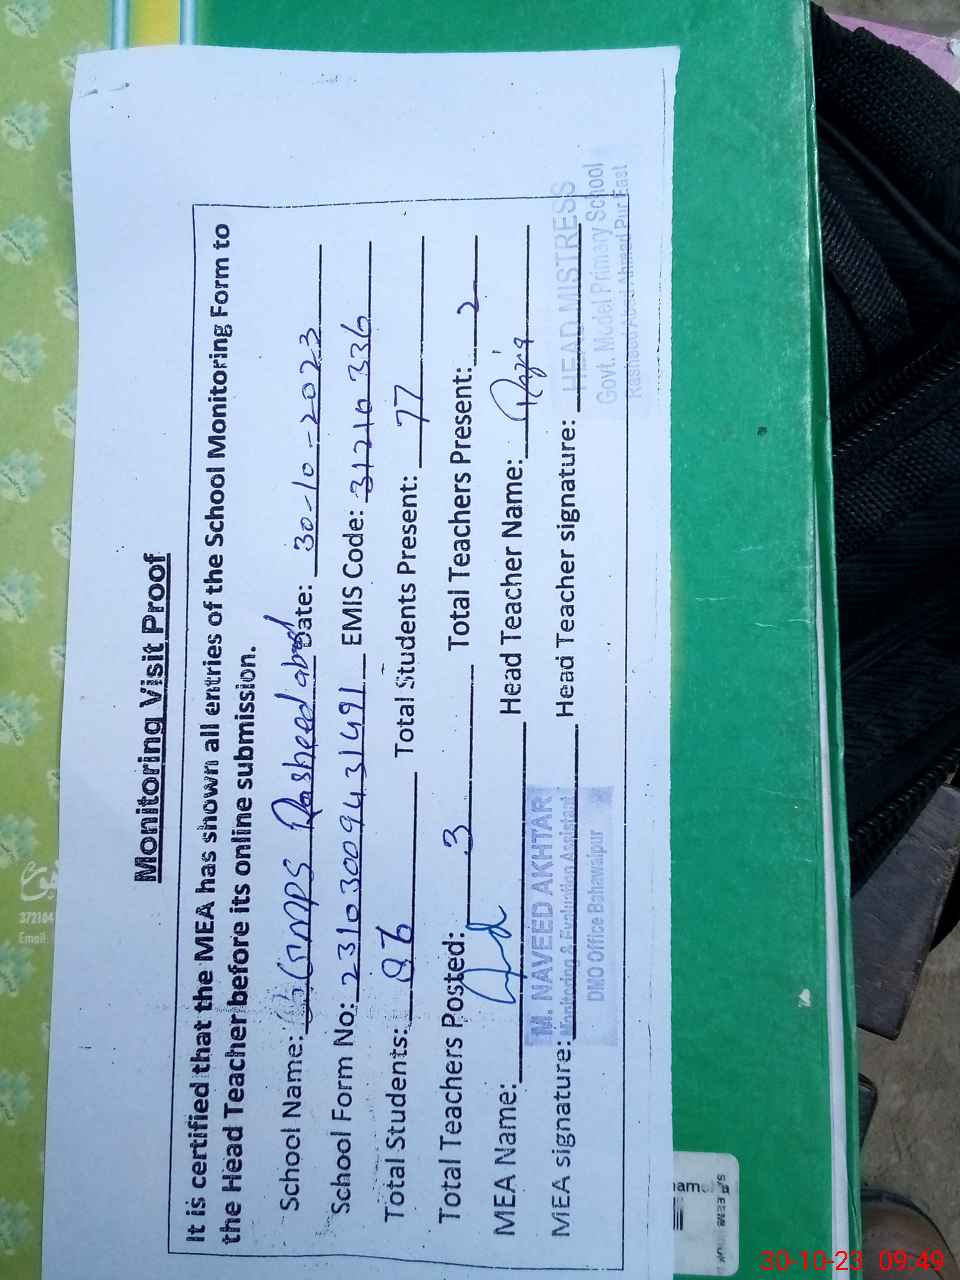 Monitoring Visit Proof
It is certified that the MEA has shown all entries of the School Monitoring Form to
the Head Teacher before its online submission.
School Name: GMPS Rasheed abad Date: 30-10-2023
School Form No: 23103009431491 EMIS Code: 31210336
Total Students: 86 Total Students Present: 77
Total Teachers Posted: 3 Total Teachers Present: 2
MEA Name: Head Teacher Name: Razia
MEA signature: Head Teacher signature:
M. NAVEED AKHTAR
Monitoring & Evaluation Assistant
DMO Office Bahawalpur
HEAD MISTRESS
Govt. Model Primary School
Rasheed Abad Ahmed Pur East
372104
Email:
30-10-23 09:49